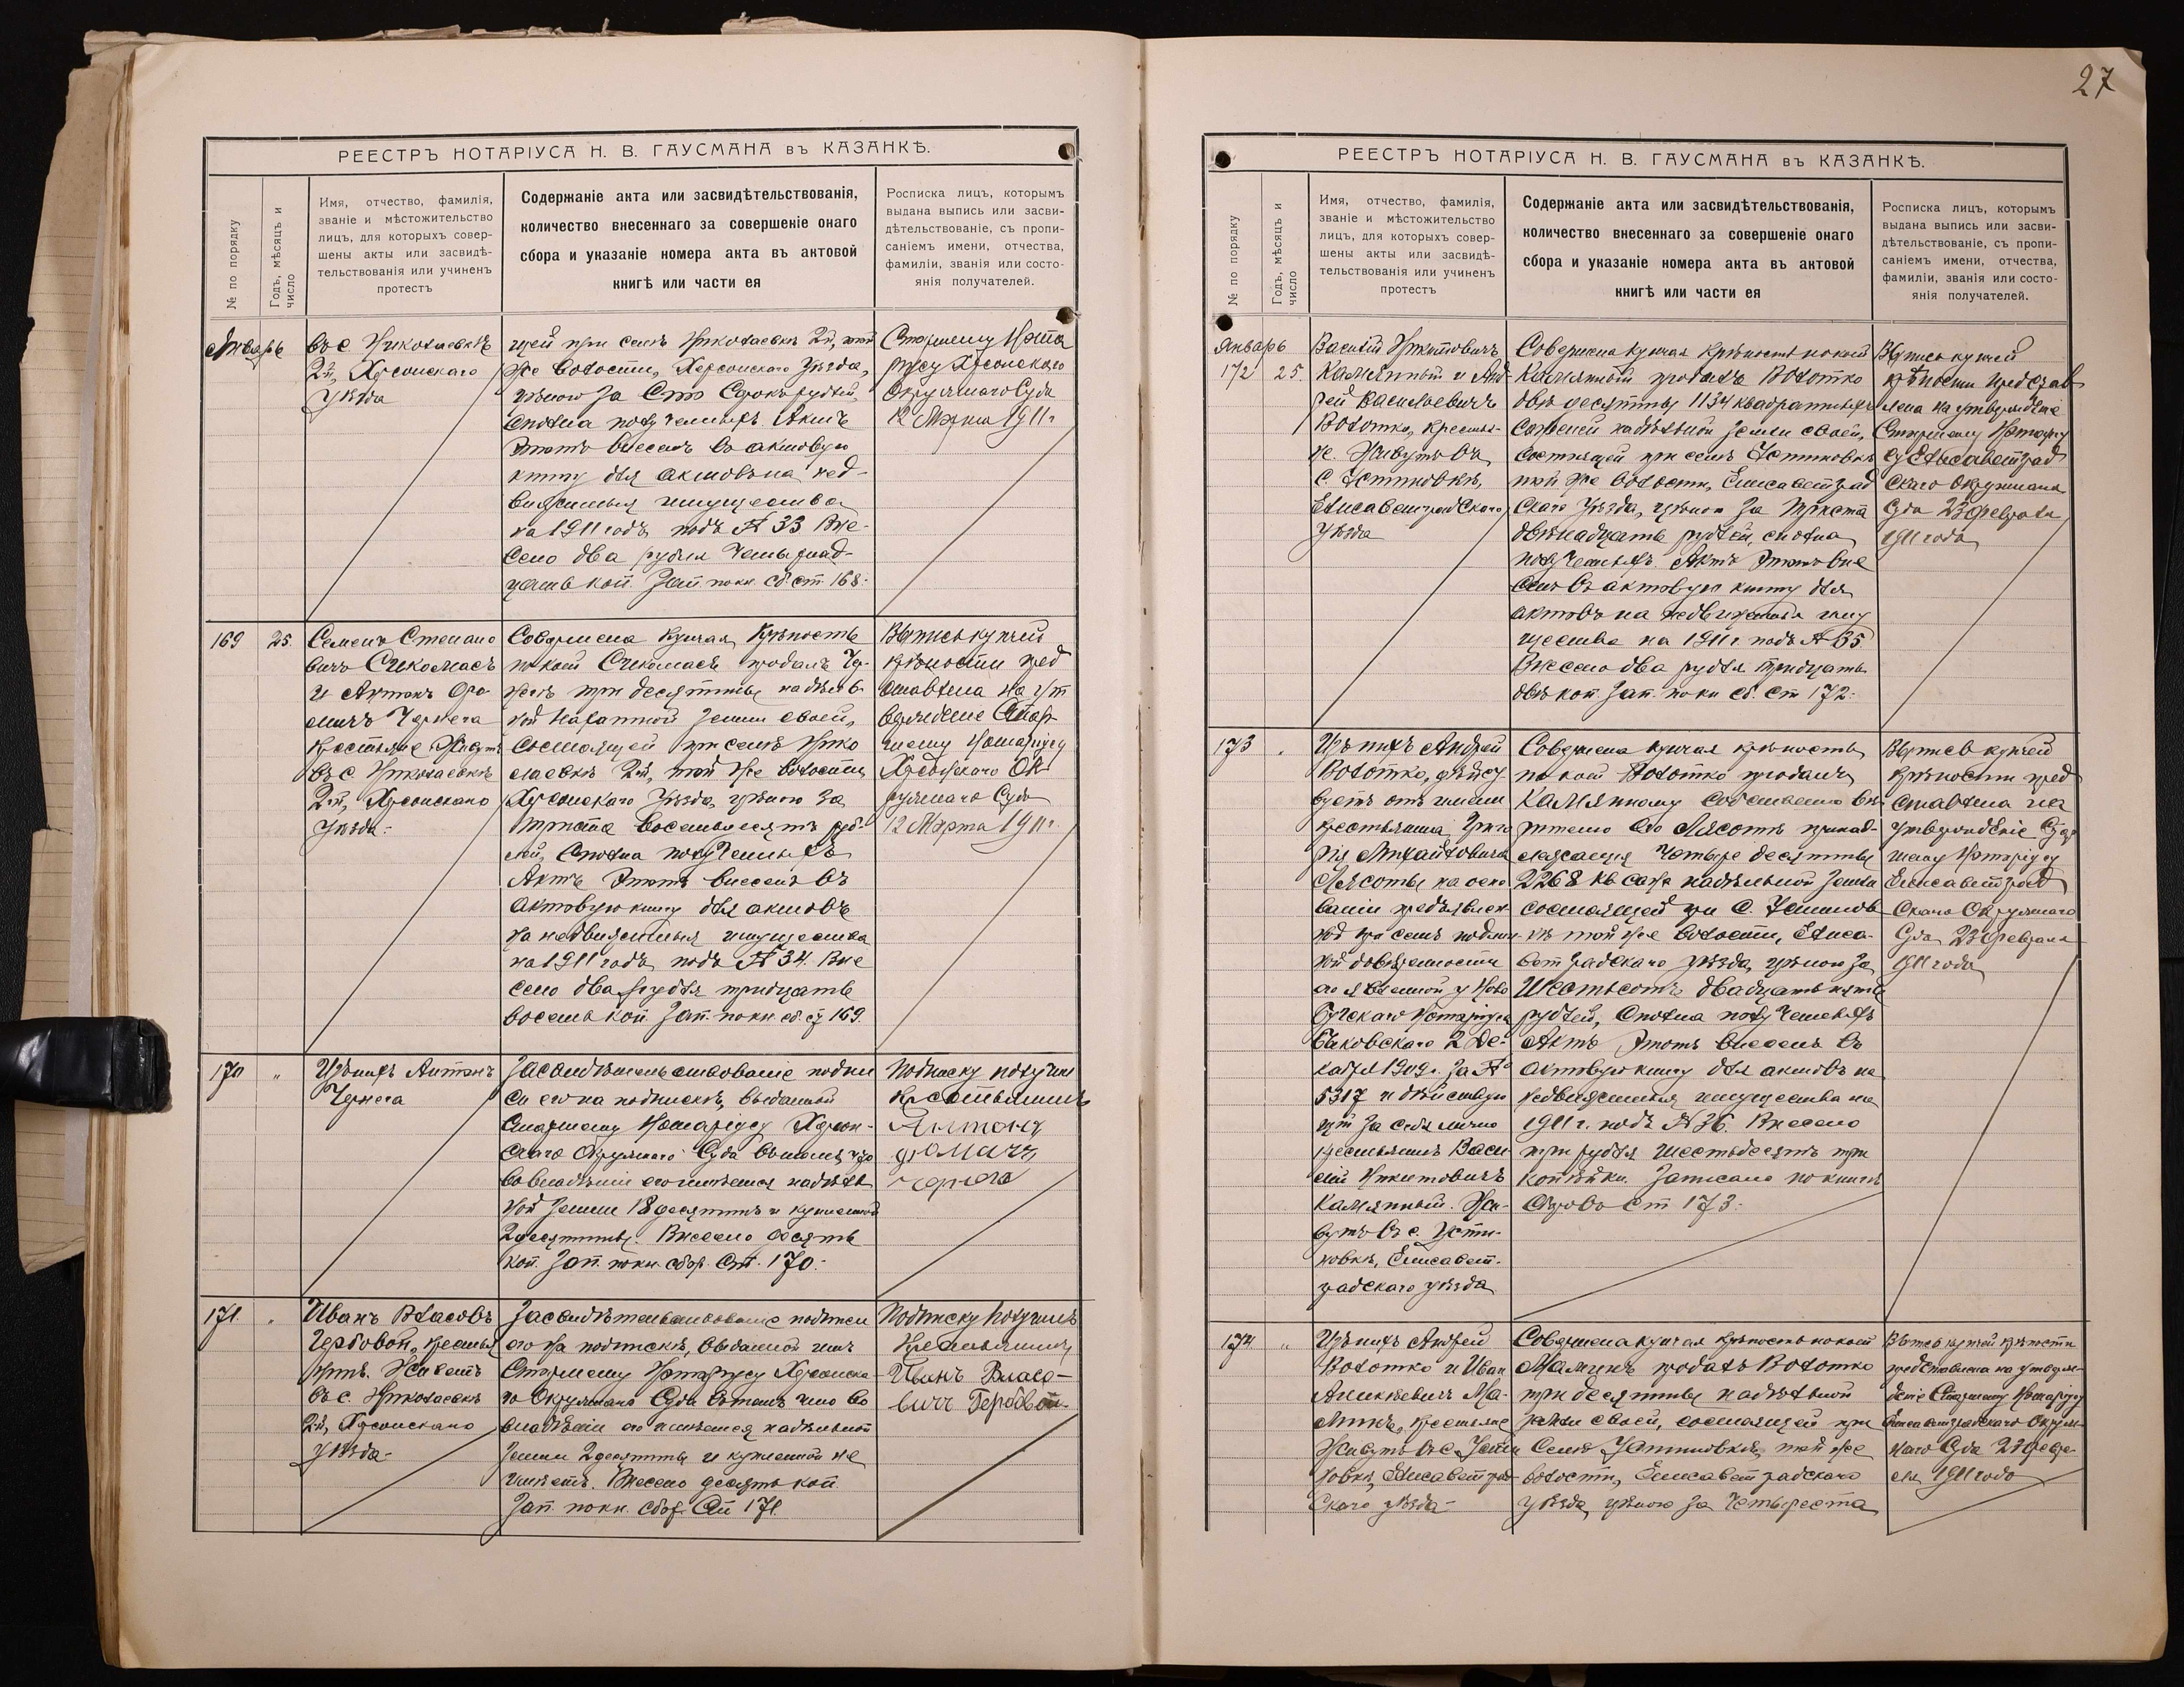 27
РЕЕСТРЪ НОТАРІУСА Н. В. ГАУСМАНА въ КАЗАНКѢ.
№ по порядку
Годъ, мѣсяцъ и
число
Имя, отчество, фамилія,
званіе и мѣстожительство
лицъ, для которыхъ совер-
шены акты или засвидѣ-
тельствованія или учиненъ
протестъ
Содержаніе акта или засвидѣтельствованія,
количество внесеннаго за совершеніе онаго
сбора и указаніе номера акта въ актовой
книгѣ или части ея
Росписка лицъ, которымъ
выдана выпись или засви-
дѣтельствованіе, съ пропи-
саніемъ имени, отчества,
фамиліи, званія или состо-
янія получателей.
Январь
въ с. Николаевкѣ
2й, Херсонскаго
уѣзда
щей при селѣ Николаевкѣ 2й, той
же волости, Херсонскаго уѣзда,
цѣною за Сто Сорокъ рублей,
сполна полученныхъ. Актъ
этотъ внесенъ въ актовую
книгу для актовъ на нед-
вижимыя имущества
на 1911 годъ подъ № 33 Вне-
сено два рубля четырнад-
цать коп. Зап. по кн. сб. ст 168.
Старшему Нота
ріусу Херсонскаго
Окружнаго Суда
12 Марта 1911 г
169
25.
Семенъ Степано
вичъ
и Антонъ Фо-
мичъ Чернега
крестьяне Живутъ
въ с. Николаевкѣ
2й, Херсонскаго
уѣзда.
Совершена купчая крѣпость
по коей продалъ Чер-
негѣ три десятины надѣль-
ной земли своей,
состоящей при селѣ Нико
лаевкѣ 2й, той же волости
Херсонскаго уѣзда, цѣною за
триста восемьдесятъ руб-
лей, сполна полученныхъ
Актъ этотъ внесенъ въ
актовую книгу для актовъ
на недвижимыя имущества
на 1911 годъ подъ № 34. Вне
сено два рубля тридцать
восемь коп. Зап. по кн. сб. ст 169.
Выпись купчей
крѣпости пред
ставлена на ут
вержденіе Стар-
шему Нотаріусу
Херсонскаго Ок
ружнаго Суда
12 Марта 1911 г.
170
"
Изъ нихъ Антонъ
Чернега
Засвидѣтельствованіе подпи
си его на подпискѣ, выданной
Старшему Нотаріусу Херсон-
скаго Окружнаго Суда въ томъ, что
во владѣніи его имѣется надѣль
ной земли 18 десятинъ и купленной
2 десятины. Внесено десять
коп. Зап. по кн. сбор. ст. 170.
Подписку получилъ
Крестьянинъ
Антонъ
Фомичъ
Чернега
171.
"
Иванъ Власовъ
Гербовой, крестья
нинъ. Живетъ
въ с. Николаевкѣ
2й, Херсонскаго
уѣзда.
Засвидѣтельствованіе подписи
его на подпискѣ, выданной имъ
Старшему Нотаріусу Херсонска
го Окружнаго Суда въ томъ что во
владѣніи его имѣется надѣльной
земли 2 десятины и купленной не
имѣетъ. Внесено десять коп.
Зап. по кн. сбор. ст 171.
Подписку получилъ
Крестьянинъ
Иванъ Власо-
вичъ Гербовой
РЕЕСТРЪ НОТАРІУСА Н. В. ГАУСМАНА въ КАЗАНКѢ.
№ по порядку
Годъ, мѣсяцъ и
число
Имя, отчество, фамилія,
званіе и мѣстожительство
лицъ, для которыхъ совер-
шены акты или засвидѣ-
тельствованія или учиненъ
протестъ
Содержаніе акта или засвидѣтельствованія,
количество внесеннаго за совершеніе онаго
сбора и указаніе номера акта въ актовой
книгѣ или части ея
Росписка лицъ, которымъ
выдана выпись или засви-
дѣтельствованіе, съ пропи-
саніемъ имени, отчества,
фамиліи, званія или состо-
янія получателей.
Январь
172
25.
Василій Никитовичъ
Камянный и Анд-
рей Васильевичъ
Волотко, крестья-
не. Живутъ въ
с. Устиновкѣ,
Елисаветградскаго
уѣзда
Совершена купчая крѣпость по коей
Камянный продалъ Волотко
двѣ десятины 1134 квадратныхъ
сажени надѣльной земли своей,
состоящей при селѣ Устиновкѣ
той же волости, Елисаветград
скаго уѣзда, цѣною за триста
двѣнадцать рублей, сполна
полученныхъ. Актъ этотъ вне
сенъ въ актовую книгу для
актовъ на недвижимыя иму
щества на 1911 г. подъ № 35.
Внесено два рубля тридцать
двѣ коп. Зап. по кн. сб. ст 172.
Выпись купчей
крѣпости представ
лена на утвержденіе
Старшему Нотаріу
су Елисаветград
скаго Окружнаго
Суда 23 Февраля
1911 года
173
"
Изъ нихъ Андрей
Волотко, дѣйст
вуетъ отъ имени
крестьянина Григо
рія Михайловича
Лясоты на осно
ваніи предъявлен
ной при семъ подлин-
ной довѣренности
его явленной у Ново
бугскаго Нотаріуса
Быковскаго 2 Де-
кабря 1909 г. за №
5317 и дѣйствую
щій за себя лично
крестьянинъ Васи
лій Никитовичъ
Камянный. Жи-
вутъ въ с. Усти-
новкѣ, Елисавет-
градскаго уѣзда
Совершена купчая крѣпость
по коей Волотко продалъ
Камянному собственно
его Лясотѣ принад-
лежащія четыре десятины
2268 кв саж надѣльной земли
состоящей при с. Устинов-
кѣ той же волости, Елиса-
ветградскаго уѣзда, цѣною за
Шестьсотъ двадцать пять
рублей, сполна полученныхъ
Актъ этотъ внесенъ въ
актовую книгу для актовъ на
недвижимыя имущества на
1911 г. подъ № 36. Внесено
три рубля шестьдесятъ три
копѣйки. Записано по книгѣ
сборовъ ст 173.
Выпись купчей
крѣпости пред
ставлена на
утвержденіе Стар
шему Нотаріусу
Елисаветград
скаго Окружнаго
Суда 23 Февраля
1911 года
174
"
Изъ нихъ Андрей
Волотко и Иван
Аникіевичъ Ма-
линъ, крестьяне
Живутъ въ с. Усти
новкѣ, Елисаветград-
скаго уѣзда
Совершена купчая крѣпость по коей
Малинъ продалъ Волотко
три десятины надѣльной
земли своей, состоящей при
селѣ Устиновкѣ, той же
волости, Елисаветградскаго
уѣзда, цѣною за четыреста
Выпись купчей крѣпости
представлена на утверж-
деніе Старшему Нотаріусу
Елисаветградскаго Окруж-
наго Суда 23 Февра-
ля 1911 года